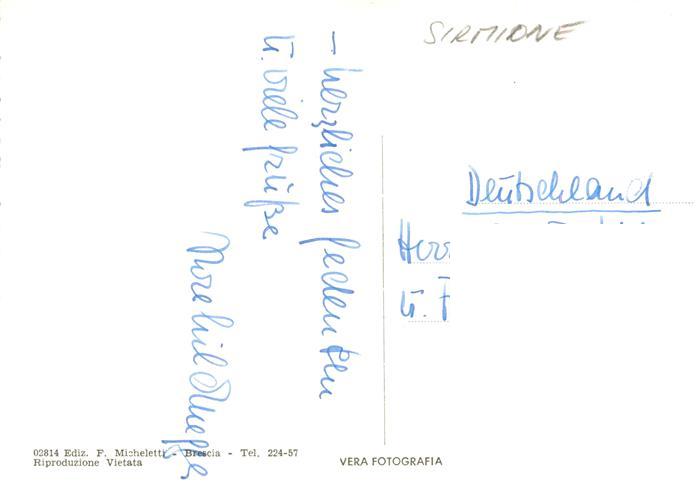 SIRMIONE
– herzliches Gedenken
u. viele Grüße
Deutschland
Herr
u. F
02814 Ediz. F. Micheletti - Brescia - Tel. 224-57
Riproduzione Vietata
VERA FOTOGRAFIA